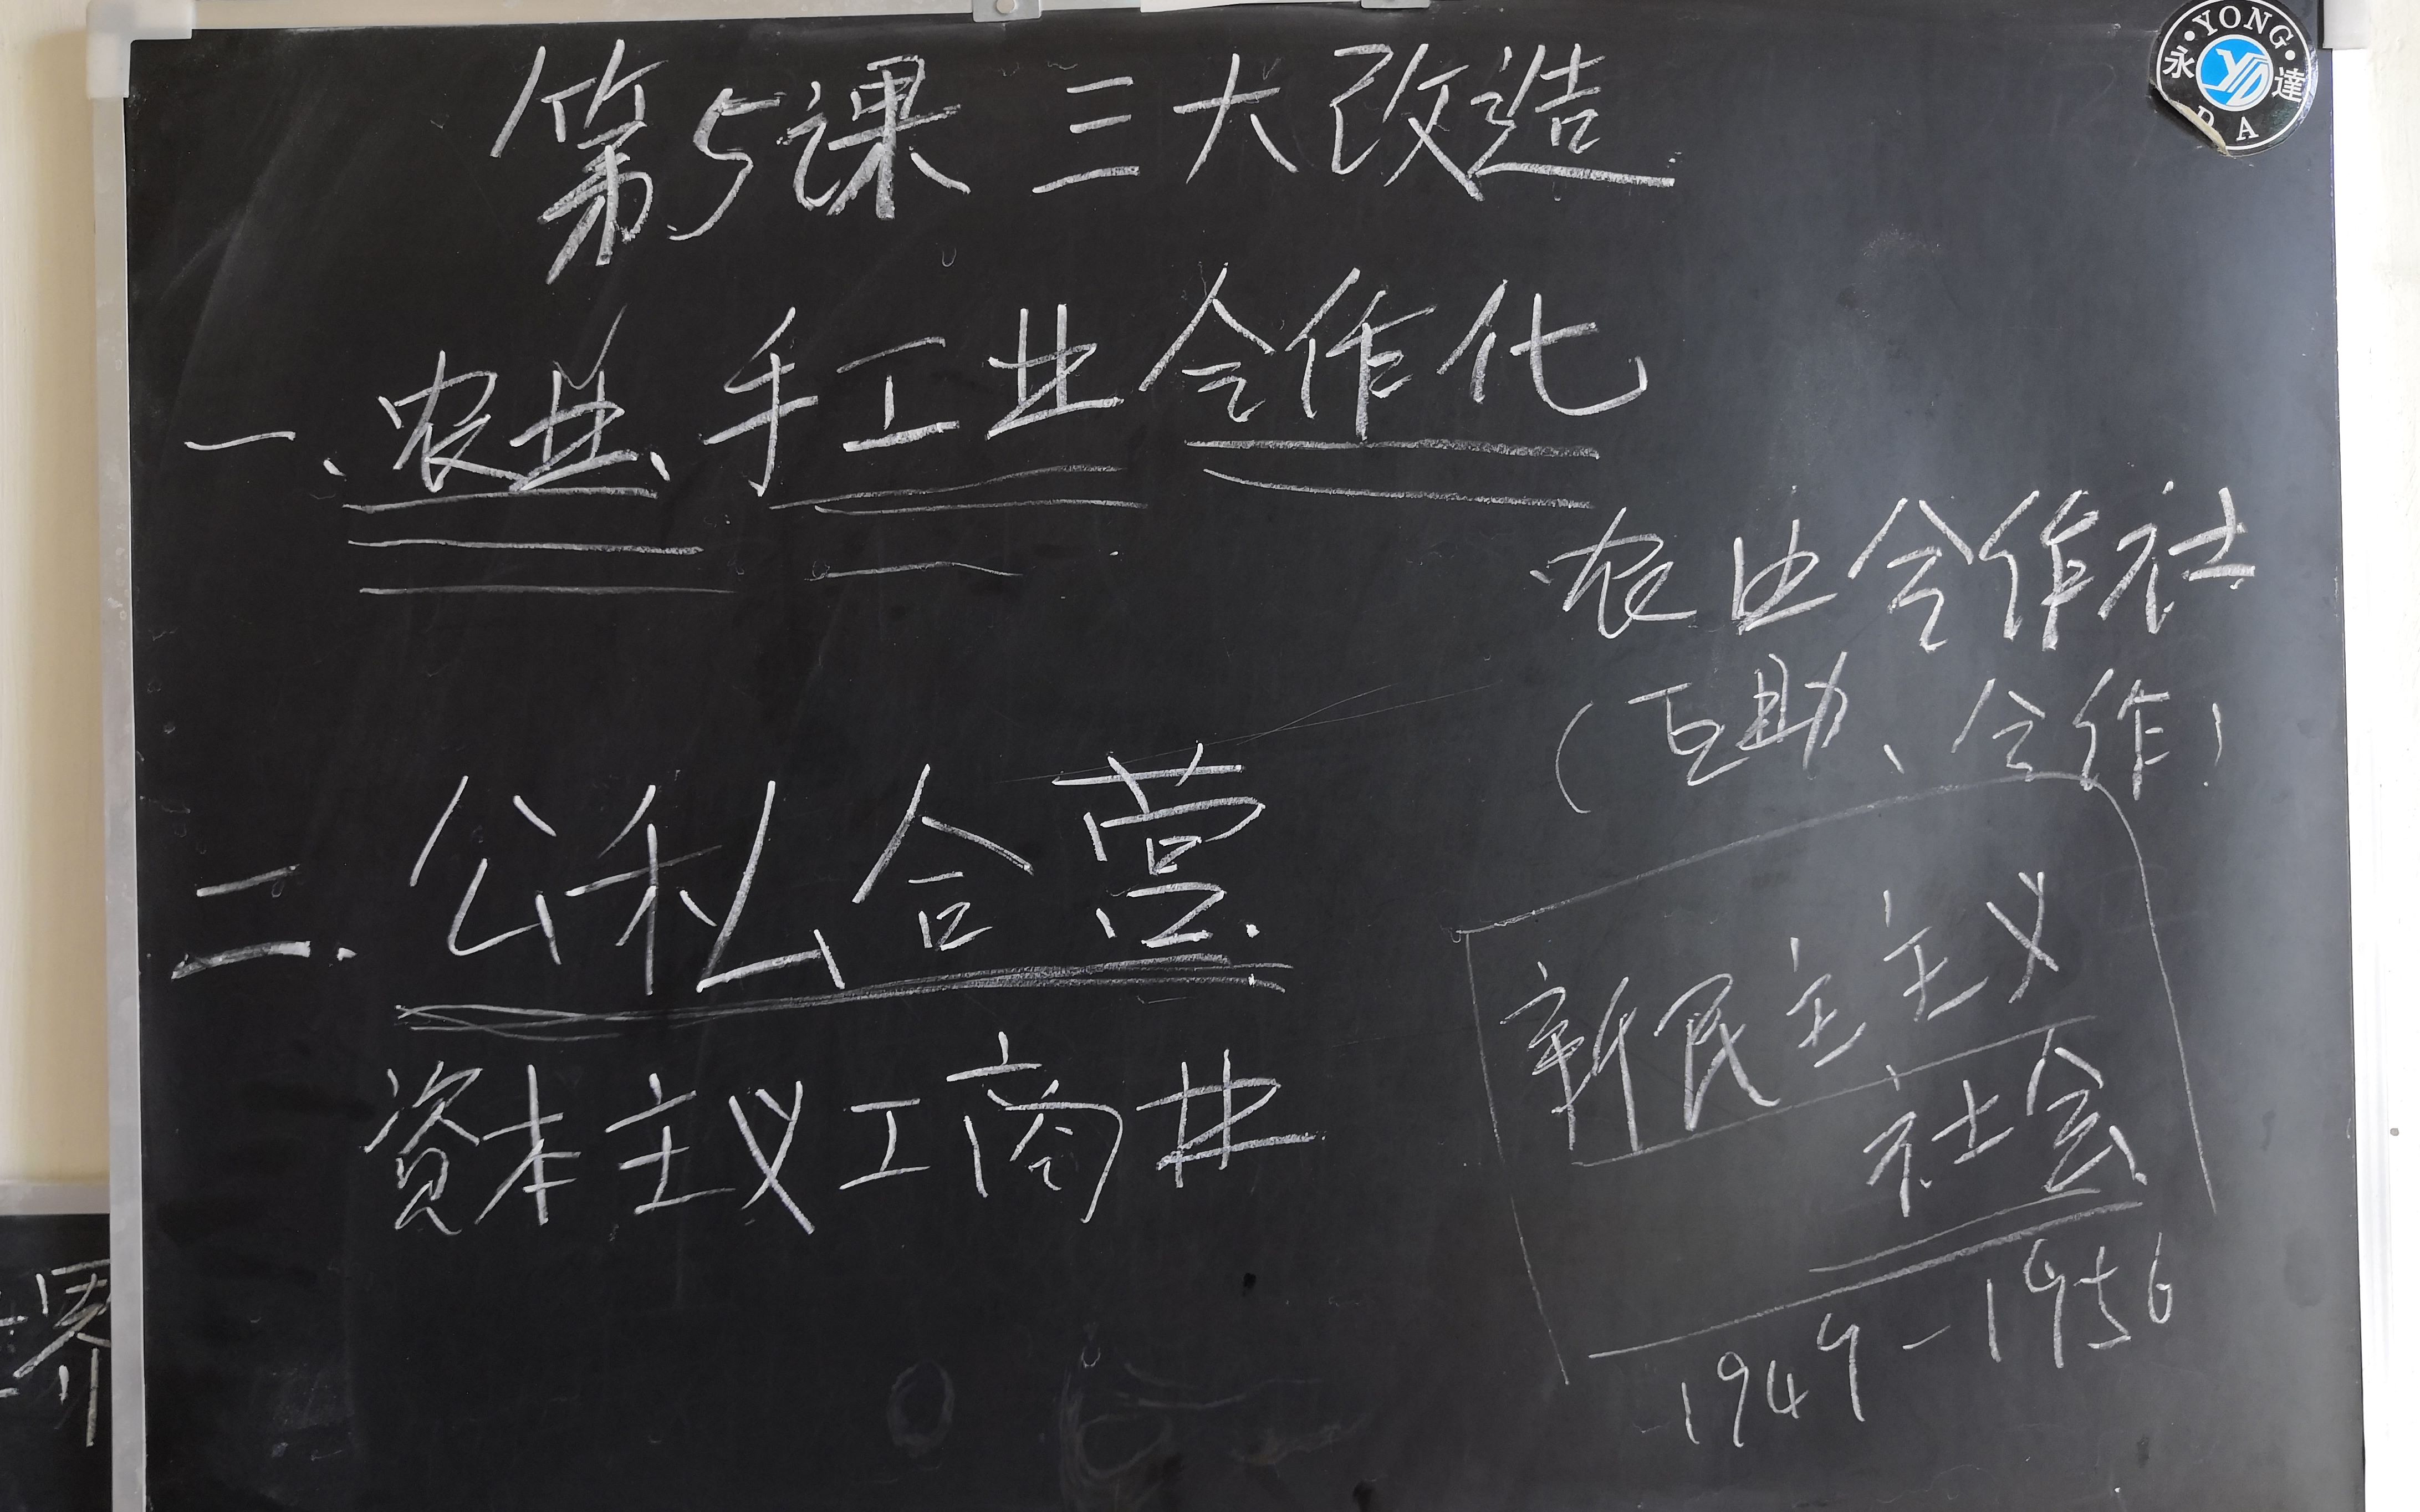 第5课 三大改造
一、农业、手工业合作化
农业合作社
(互助、合作)
二.公私合营.
资本主义工商业
新民主主义
社会
1949-1956
YONG
永 YD 達
DA
界